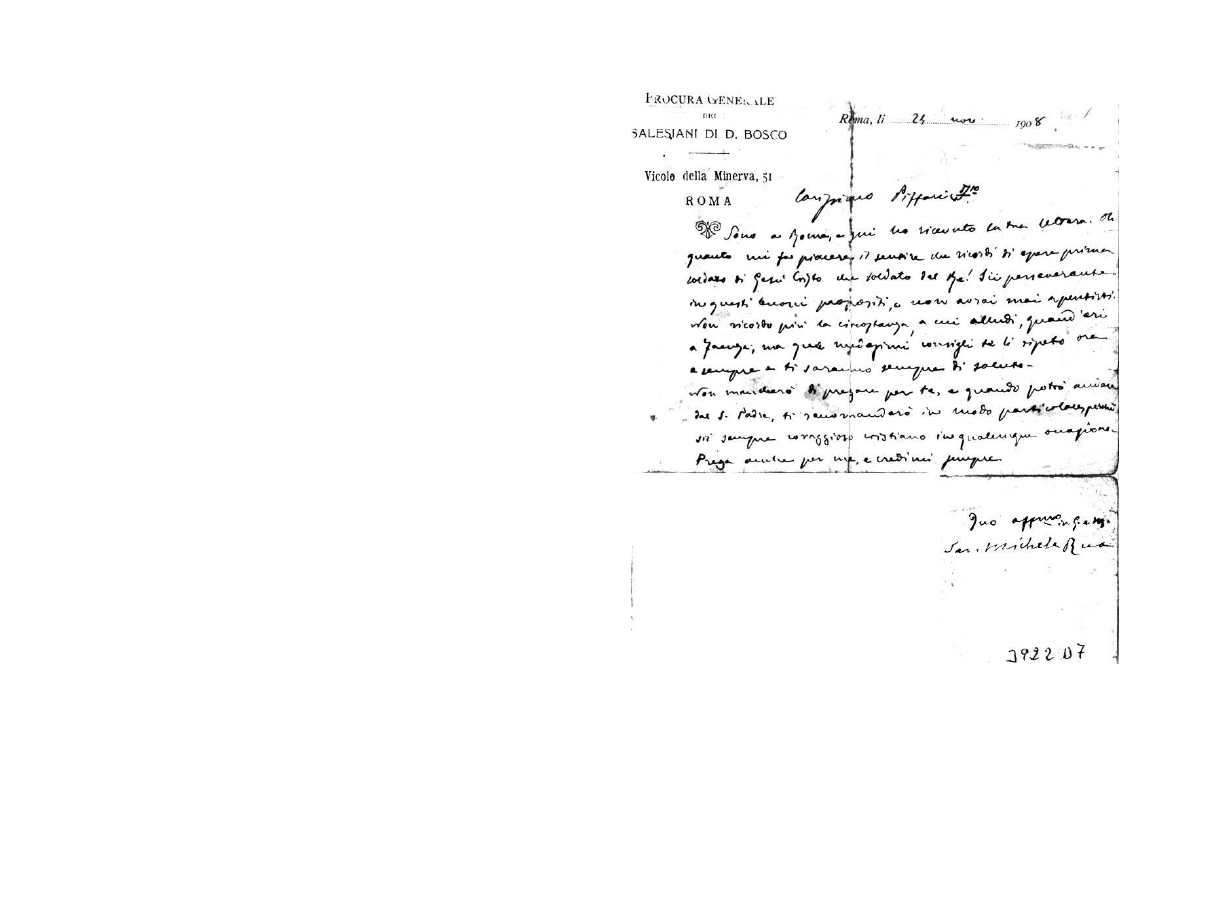 PROCURA GENERALE
DEI
SALESIANI DI D. BOSCO
Vicolo della Minerva, 51
ROMA
Roma, li 24 nov 1908
Carissimo Pifferi
Sono a Roma, e qui ho ricevuto la tua lettera. Oh
quanto mi fa piacere il sentire che ricordi di essere prima
soldato di Gesù Cristo che soldato del Re! Sii perseverante
in questi buoni propositi, e non avrai mai a pentirti.
Non ricordo più la circostanza, a cui alludi, quand'eri
a Faenza, ma quei medesimi consigli te li ripeto ora
e sempre e ti saranno sempre di salute.
Non mancherò di pregare per te, e quando potrò andare
dal S. Padre, ti raccomanderò in modo particolare, perchè
sii sempre coraggioso cristiano in qualunque occasione.
Prega anche per me, e credimi sempre
Tuo affmo in G. e M.
Sac. Michele Rua
3922 D7